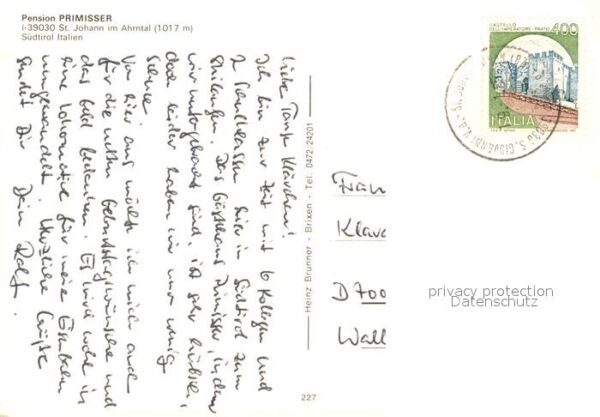 Pension PRIMISSER
I-39030 St. Johann im Ahrntal (1017 m)
Südtirol Italien
Liebe Tante Klärchen!
Ich bin zur Zeit mit 6 Kollegen und
2 Schulklassen hier in Südtirol zum
Skilaufen. Das Gästehaus Primisser, in dem
wir untergebracht sind, ist sehr hübsch,
doch leider haben wir nur wenig
Schnee.
Von hier aus möchte ich mich auch
für die netten Geburtstagswünsche und
das Geld bedanken. Es wird wohl in
eine Lokomotive für meine Eisenbahn
umgewandelt. Herzliche Grüße
sendet Dir Dein Rolf.
Heinz Brunner - Brixen - Tel. 0472-24201
227
CASTELLO
DELL'IMPERATORE - PRATO
400
ITALIA
S. GIOVANNI
Frau
Klara
D 700
Wall
privacy protection
Datenschutz